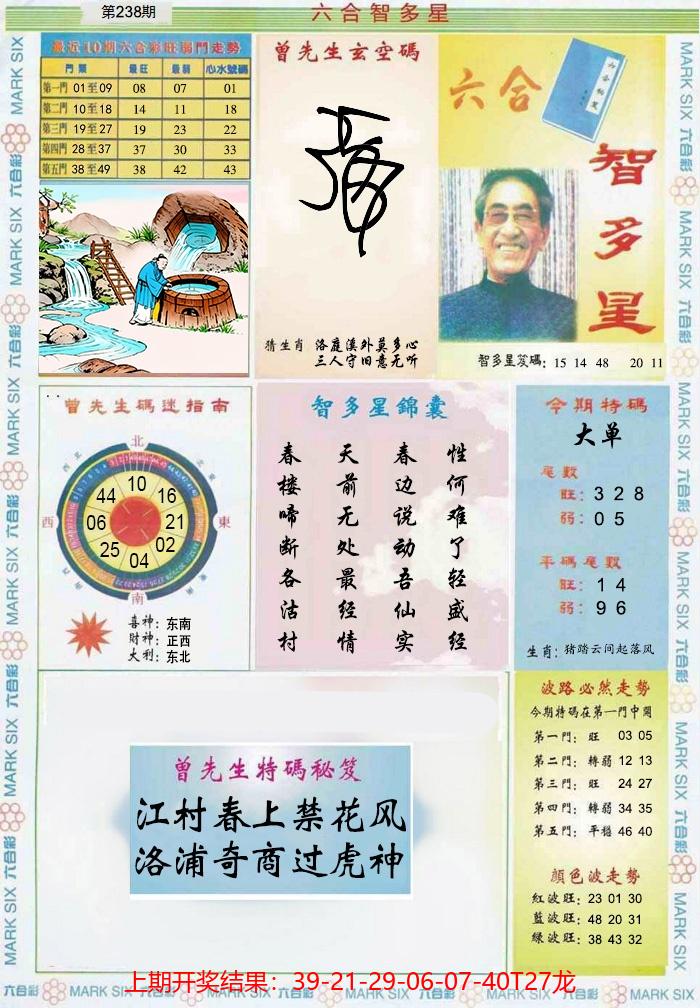 第238期
六合智多星
最近10期六合彩旺弱門走勢
門類 最旺 最弱 心水號碼
第一門 01至09 08 07 01
第二門 10至18 14 11 18
第三門 19至27 19 23 22
第四門 28至37 37 30 33
第五門 38至49 38 42 43
曾先生玄空碼
猜生肖 洛庭溪外莫多心
三人守旧意无听
六合
六合秘笈
智多星
智多星笈碼: 15 14 48 20 11
曾先生碼迷指南
北
西北
東北
西
東
南
10
16
21
02
04
25
06
44
喜神: 东南
财神: 正西
大利: 东北
智多星錦囊
性何难了轻盛经
春边说动吾仙实
天前无处最经情
春楼啼断各沽村
今期特碼
大单
尾數
旺: 3 2 8
弱: 0 5
平碼尾數
旺: 1 4
弱: 9 6
生肖: 猪踏云间起落风
曾先生特碼秘笈
江村春上禁花风
洛浦奇商过虎神
波路必然走勢
今期特碼在第一門中開
第一門: 旺 03 05
第二門: 轉弱 12 13
第三門: 旺 24 27
第四門: 轉弱 34 35
第五門: 平穩 46 40
顏色波走勢
紅波旺: 23 01 30
藍波旺: 48 20 31
綠波旺: 38 43 32
上期开奖结果：39-21-29-06-07-40T27龙
MARK SIX 六合彩